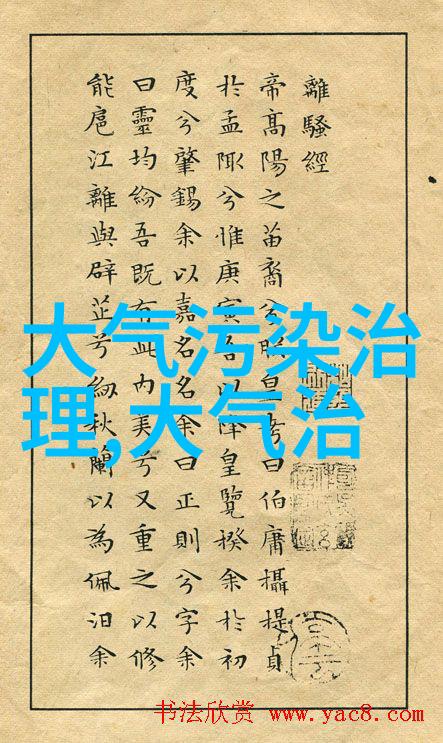 離騷經
帝高陽之苗裔兮朕皇考曰伯庸攝提貞
於孟陬兮惟庚寅吾以降皇覽揆余於初
度兮肇錫余以嘉名名余曰正則兮字余
曰靈均紛吾既有此內美兮又重之以修
能扈江離與辟芷兮紉秋蘭以為佩汨余
大气污染治
理,大气治
书法欣赏 www.yac8.com